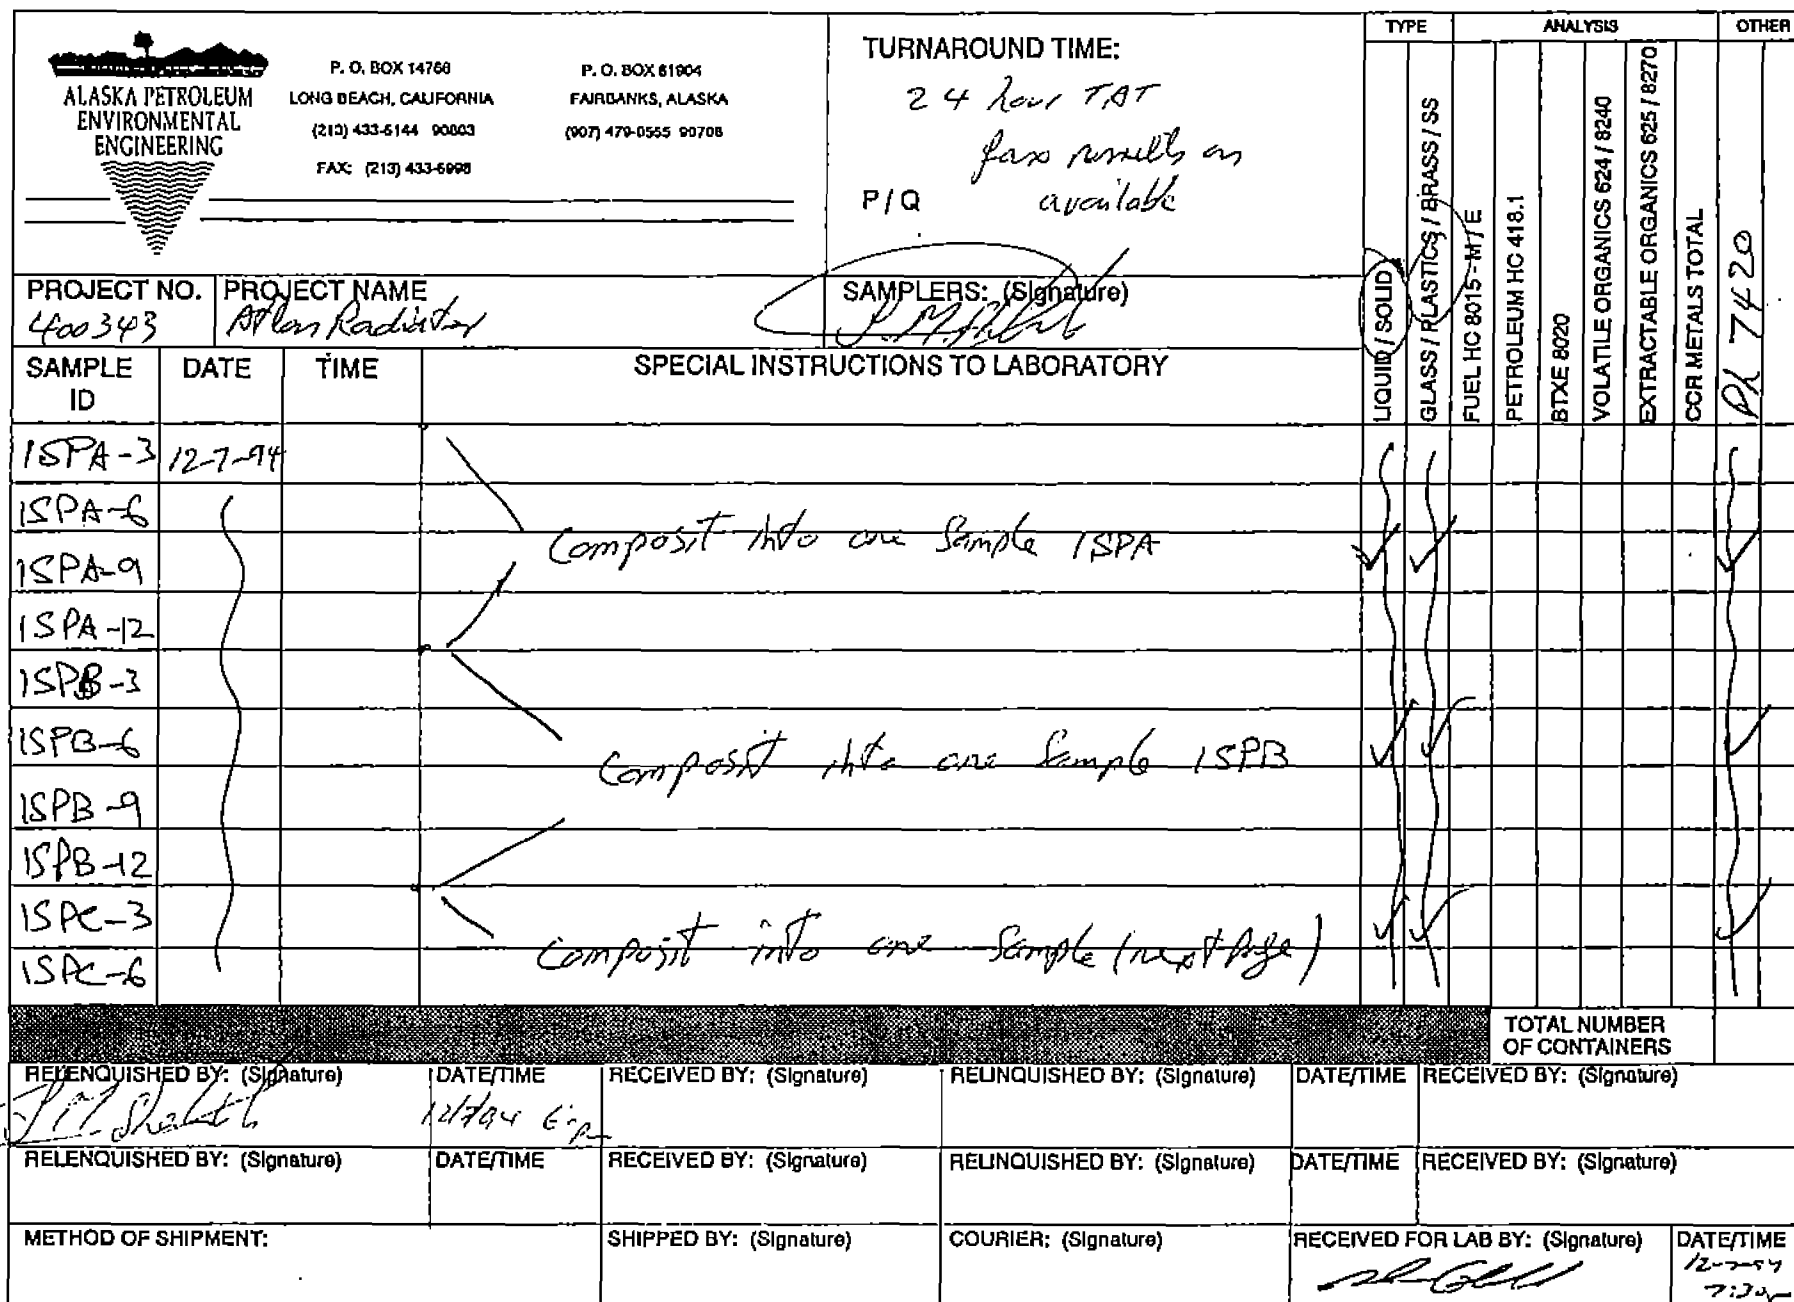 ALASKA PETROLEUM
ENVIRONMENTAL
ENGINEERING
P. O. BOX 14766
LONG BEACH, CALIFORNIA
(213) 433-5144 90803
FAX: (213) 433-6998
P. O. BOX 81904
FAIRBANKS, ALASKA
(907) 479-0555 90708
TURNAROUND TIME:
24 hour TAT
fax results as
available
P / Q
TYPE
ANALYSIS
OTHER
LIQUID / SOLID
GLASS / PLASTICS / BRASS / SS
FUEL HC 8015 - M / E
PETROLEUM HC 418.1
BTXE 8020
VOLATILE ORGANICS 624 / 8240
EXTRACTABLE ORGANICS 625 / 8270
CCR METALS TOTAL
Pb 7420
PROJECT NO.
400343
PROJECT NAME
Atlas Radiator
SAMPLERS: (Signature)
SAMPLE
ID
DATE
TIME
SPECIAL INSTRUCTIONS TO LABORATORY
1SPA-3 12-7-94
1SPA-6
Composit into one Sample 1SPA
1SPA-9
1SPA-12
1SPB-3
1SPB-6
Composit into one Sample 1SPB
1SPB-9
1SPB-12
1SPC-3
Composit into one Sample (next page)
1SPC-6
TOTAL NUMBER
OF CONTAINERS
RELENQUISHED BY: (Signature)
DATE/TIME
12/7/94
RECEIVED BY: (Signature)
RELINQUISHED BY: (Signature)
DATE/TIME
RECEIVED BY: (Signature)
RELENQUISHED BY: (Signature)
DATE/TIME
RECEIVED BY: (Signature)
RELINQUISHED BY: (Signature)
DATE/TIME
RECEIVED BY: (Signature)
METHOD OF SHIPMENT:
SHIPPED BY: (Signature)
COURIER: (Signature)
RECEIVED FOR LAB BY: (Signature)
DATE/TIME
12-7-94
7:30p